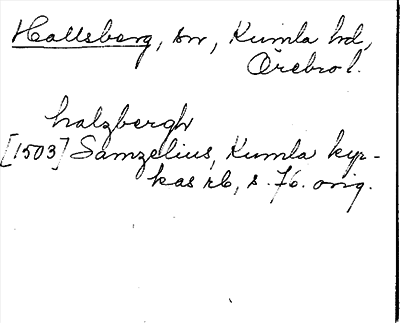 Hallsberg, sn, Kumla hd,
Örebro l.
halzbergh
[1503] Samzelius, Kumla kyr-
kas rb, s. 76. orig.